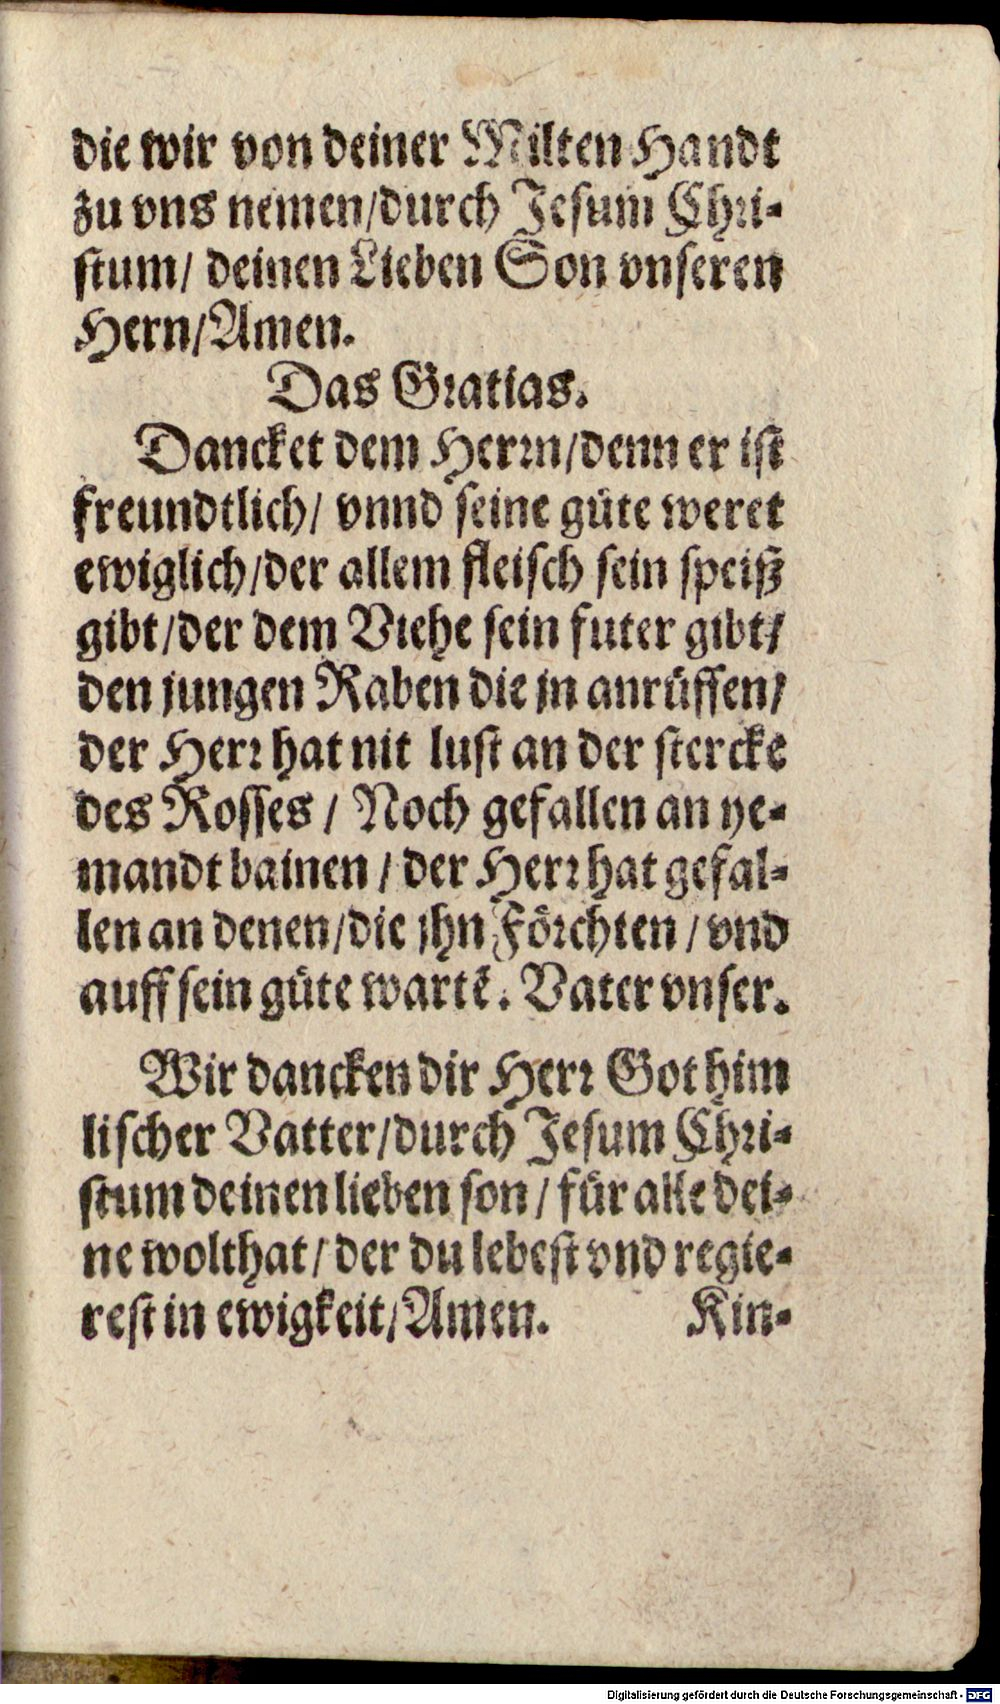 die wir von deiner Milten Handt
zu vns nemen/durch Jesum Chri-
stum/ deinen Lieben Son vnseren
Hern/Amen.
Das Gratias.
Dancket dem Herrn/denn er ist
freundtlich/ vnnd seine güte weret
ewiglich/der allem fleisch sein speiß
gibt/der dem Viehe sein futer gibt/
den jungen Raben die jn anrüffen/
der Herr hat nit lust an der stercke
des Rosses / Noch gefallen an ye-
mandt bainen / der Herr hat gefal-
len an denen/die jhn Förchten / vnd
auff sein güte wartẽ. Vater vnser.
Wir dancken dir Herr Got him
lischer Vatter/durch Jesum Chri-
stum deinen lieben son / für alle dei-
ne wolthat / der du lebest vnd regie-
rest in ewigkeit/Amen. Kin-
Digitalisierung gefördert durch die Deutsche Forschungsgemeinschaft - DFG